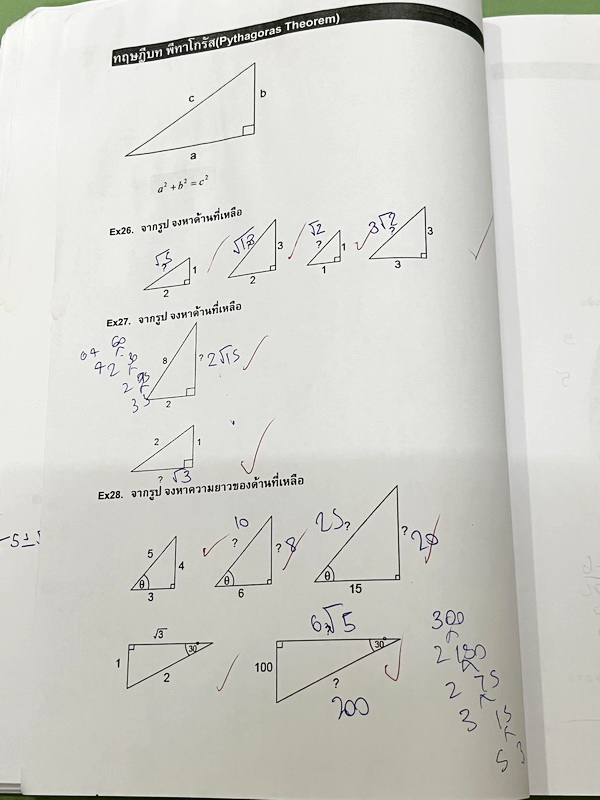 ทฤษฎีบท พีทาโกรัส(Pythagoras Theorem)
c
b
a
a² + b² = c²
Ex26. จากรูป จงหาด้านที่เหลือ
√5 ? 1 2
√13 ? 3 2
√2 ? 1 1
3√2 ? 3 3
Ex27. จากรูป จงหาด้านที่เหลือ
8 ? 2√15
2
64 60
4 2 30
2 15
3 5
2 1
? √3
Ex28. จากรูป จงหาความยาวของด้านที่เหลือ
5 4 θ 3
10 ? ? 8 θ 6
25 ? ? 20 θ 15
√3
1 30° 2
6√5
100 30° ?
200
300
2 150
2 75
3 15
5 3